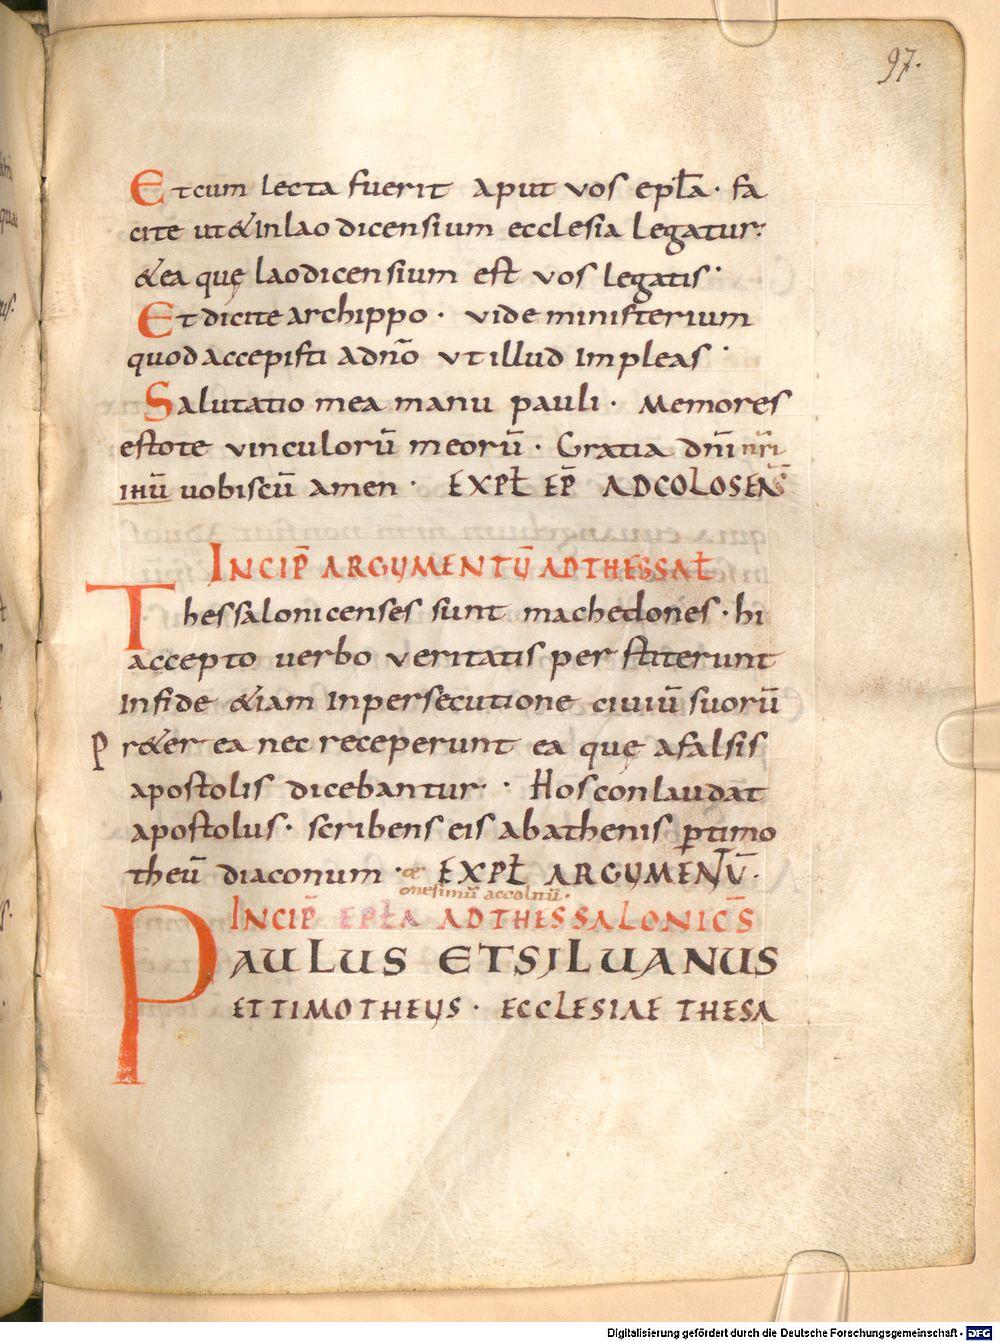 97.
Et cum lecta fuerit aput vos epɫa · fa
cite ut & in laodicensium ecclesia legatur:
& ea quę laodicensium est vos legatis ·
Et dicite archippo · vide ministerium
quod accepisti ad nō vt illud impleas ·
Salutatio mea manu pauli · Memores
estote vinculorū meorū · Gratia dn̄i nr̄i
ihū uobiscū amen · EXPŁ EP̄ AD COLOSENS̄
INCIP̄ ARGUMENTŪ AD THESSAŁ
Thessalonicenses sunt machedones · hi
accepto uerbo veritatis perstiterunt
in fide &iam in persecutione ciuiū suorū
Pr&er ea nec receperunt ea quę a falsis
apostolis dicebantur · Hos conlaudat
apostolus · scribens eis ab athenis ꝑ timo
theū diaconum · EXPŁ ARGUMENTŪ ·
& onesimū accolnū ·
INCIP̄ EPŁA AD THESSALONICS̄
PAULUS ET SILUANUS
ET TIMOTHEUS · ECCLESIAE THESA
Digitalisierung gefördert durch die Deutsche Forschungsgemeinschaft - DFG